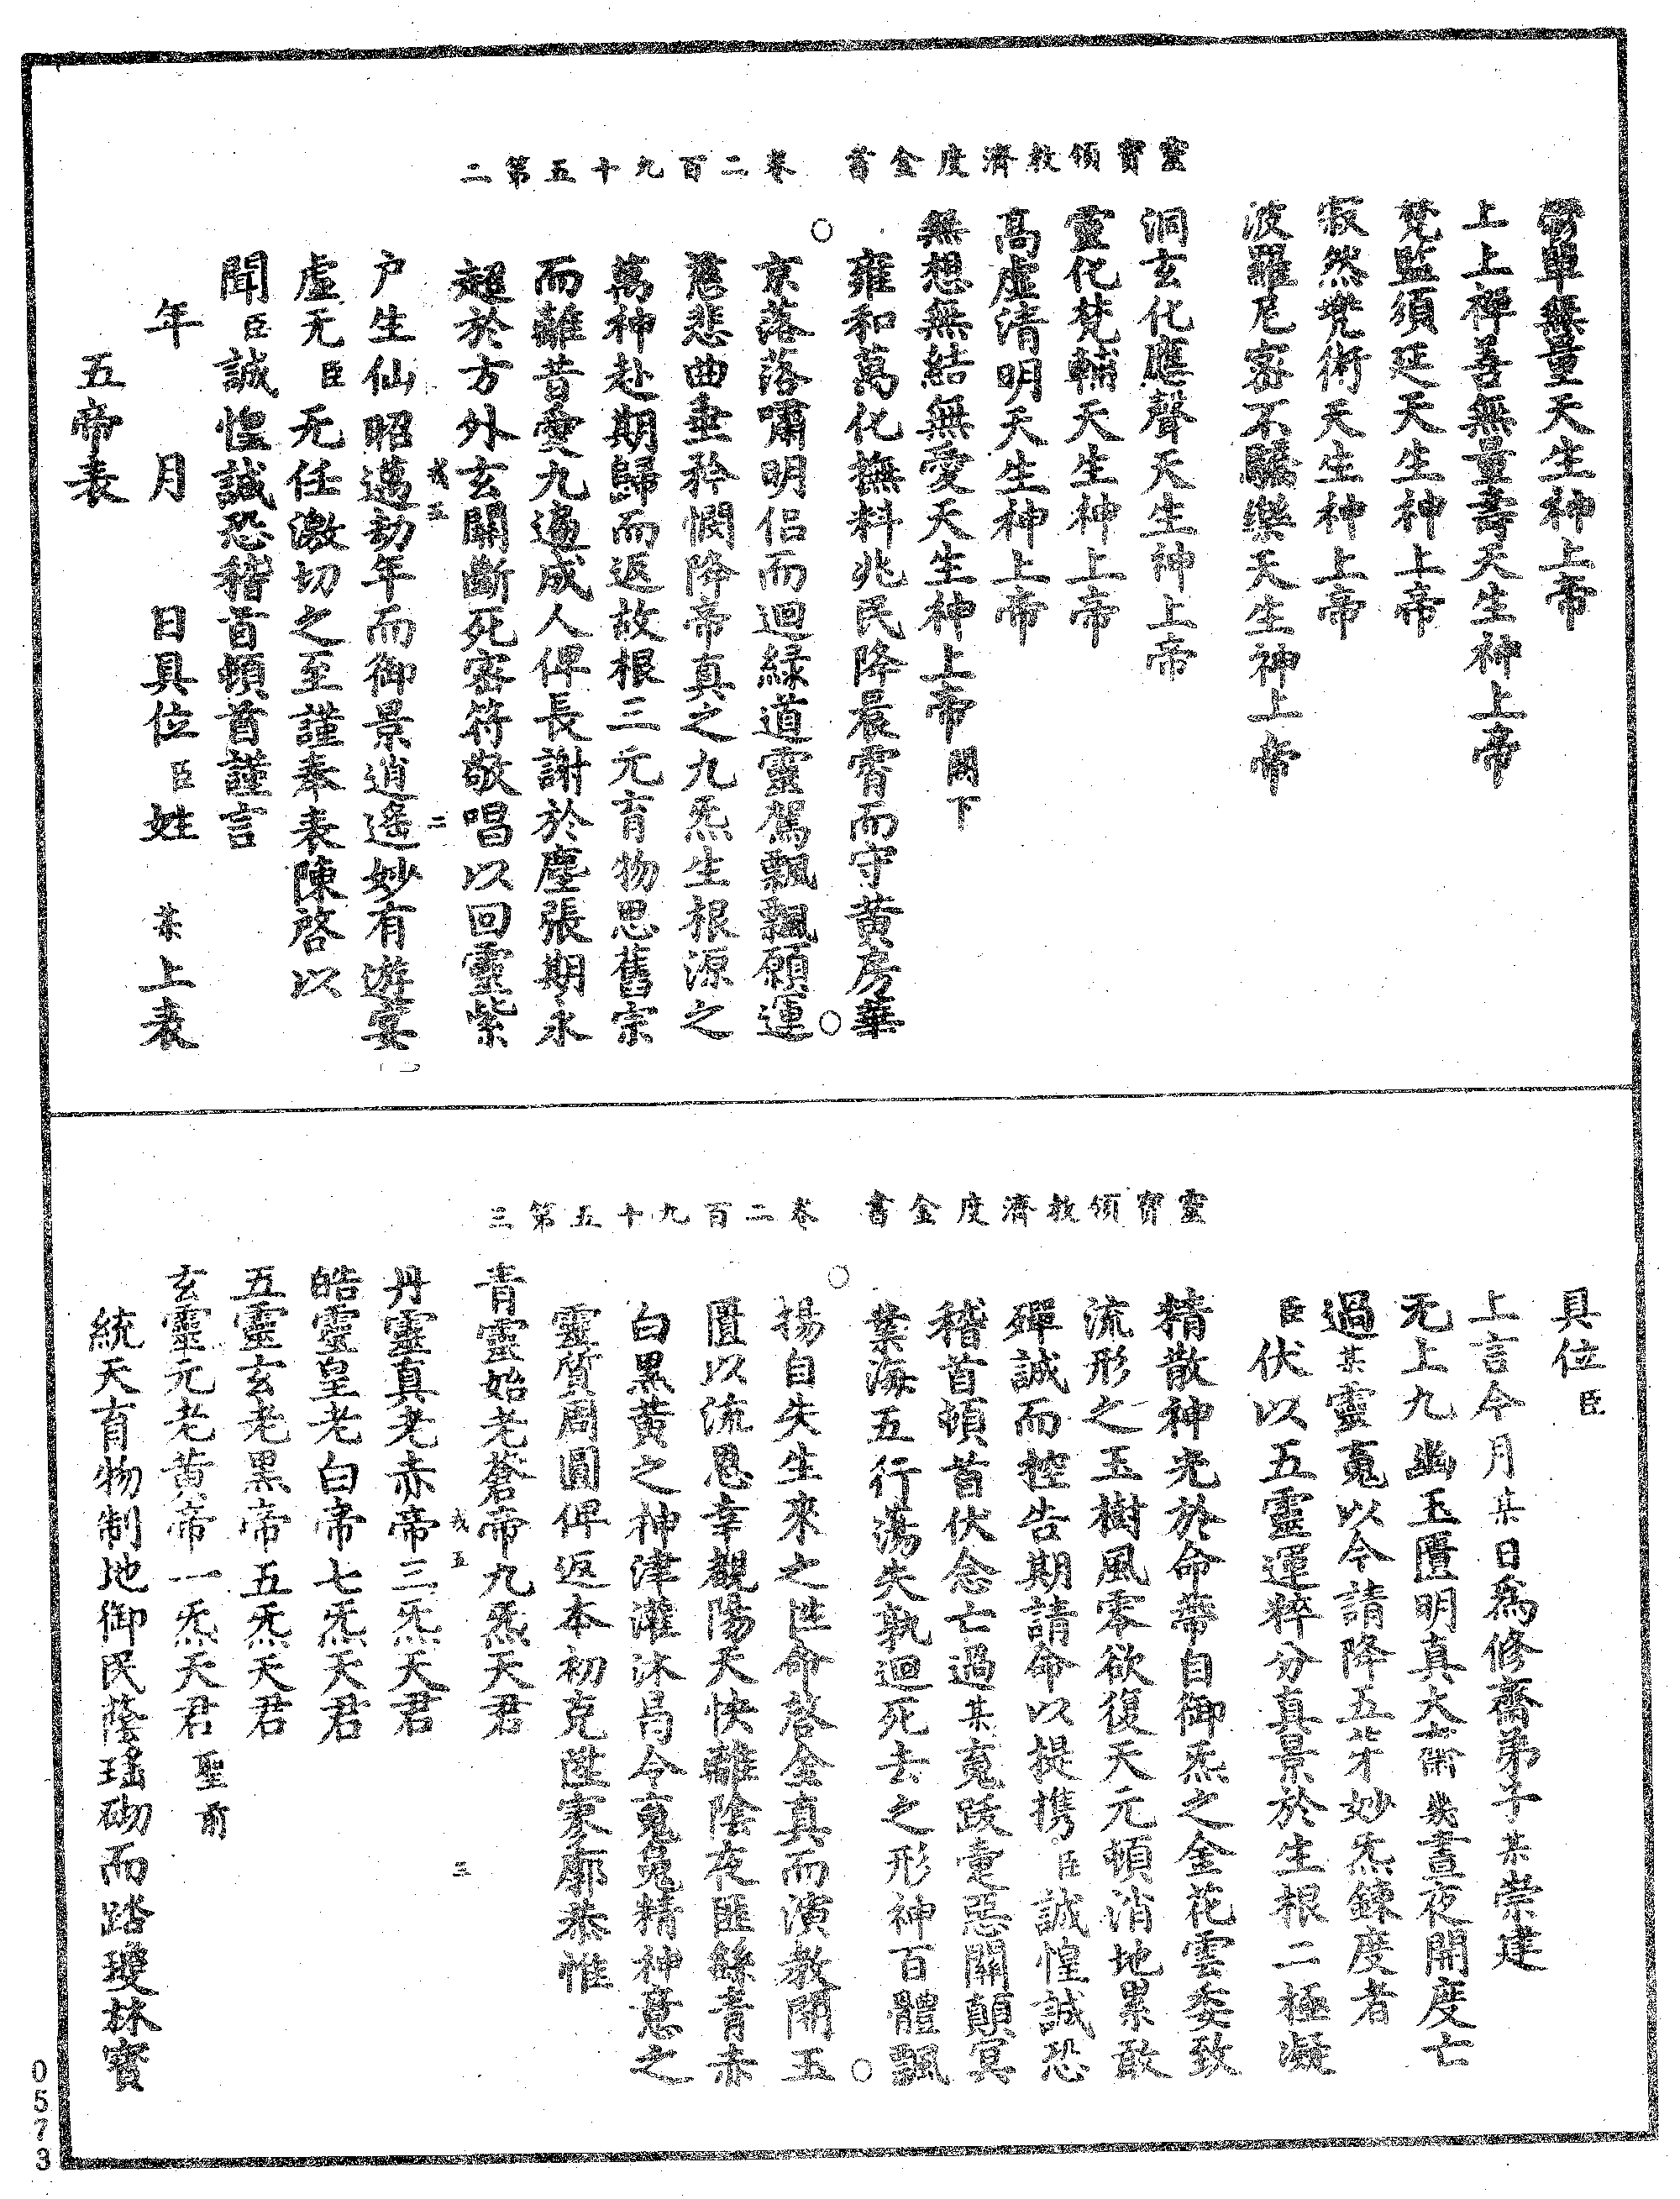 靈寶領教濟度金書　卷二百九十五第二
鬱單無量天生神上帝
上上禪善無量壽天生神上帝
梵監須延天生神上帝
寂然兜術天生神上帝
波羅尼密不驕樂天生神上帝
洞玄化應聲天生神上帝
靈化梵輔天生神上帝
高虛清明天生神上帝
無想無結無愛天生神上帝閣下
雍和萬化撫料兆民降晨霄而守黃房華
京落落嘯明侶而迴綠道靈駕飄飄願運
慈悲曲垂矜憫降帝真之九炁生根源之
萬神赴期歸而返故根三元育物思舊宗
而離昔愛九遍成人俾長謝於塵張期永
超於方外玄關斷死密符敬唱以回靈紫
戶生仙昭邁劫年而御景逍遙妙有遊宴
虛无臣无任激切之至謹奉表陳啓以
聞臣誠惶誠恐稽首頓首謹言
年　月　日具位臣姓　某上表
五帝表
靈寶領教濟度金書　卷二百九十五第三
具位臣
上言今月某日為修齋弟子某崇建
无上九幽玉匱明真大齋幾晝夜開度亡
過某靈䰟以今請降五芽妙炁鍊度者
臣伏以五靈運粹分真景於生根二極凝
精散神光於命蒂自御炁之金花雲委致
流形之玉樹風零欲復天元頓消地累敢
殫誠而控告期請命以提携臣誠惶誠恐
稽首頓首伏念亡過某䰟跋雲惡關顛冥
業海五行蕩失孰迴死去之形神百體飄
揚自失生來之性命啓金真而演教開玉
匱以流恩幸觀陽天快離陰夜匪餘青赤
白黑黃之神津灌沐曷令䰟䰟精神意之
靈質周圓俾返本初克陞寥廓恭惟
青靈始老蒼帝九炁天君
丹靈真老赤帝三炁天君
皓靈皇老白帝七炁天君
五靈玄老黑帝五炁天君
玄靈元老黃帝一炁天君聖前
統天育物制地御民蔭瑤砌而踏瓊林寶
0573